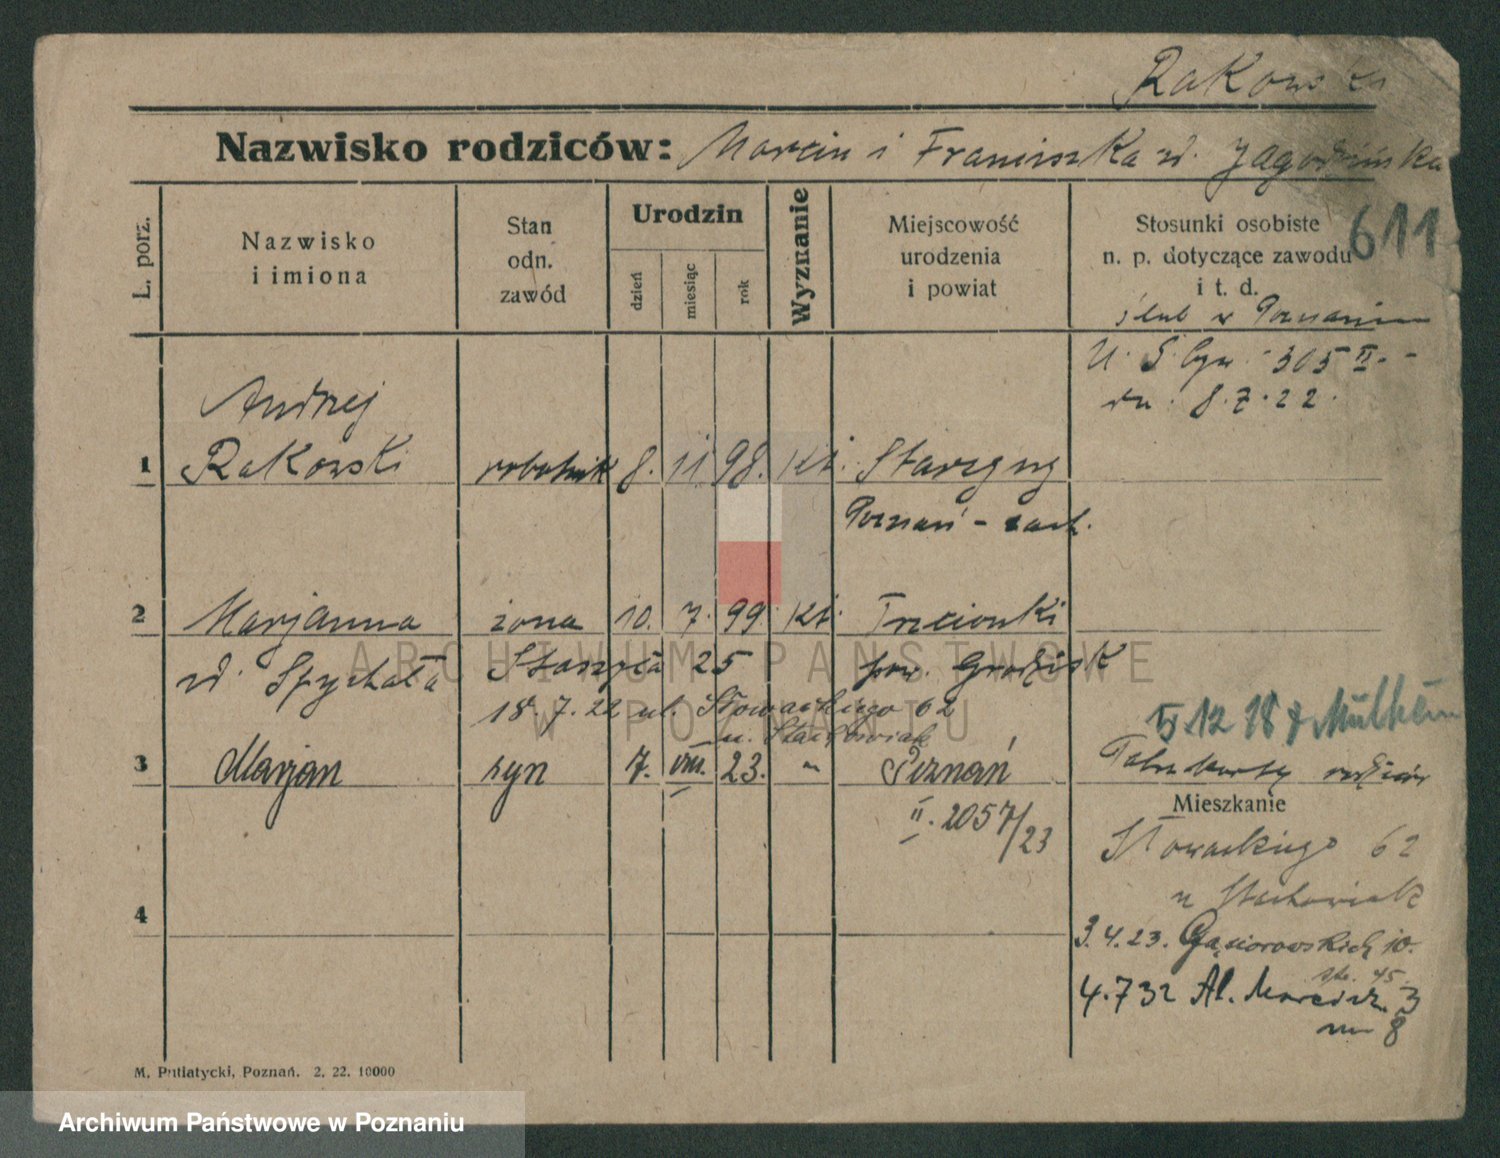 Rakowski
Nazwisko rodziców: Marcin i Franciszka zd. Jagodzińska
L. porz.
Nazwisko
i imiona
Stan
odn.
zawód
Urodzin
dzień
miesiąc
rok
Wyznanie
Miejscowość
urodzenia
i powiat
Stosunki osobiste
n. p. dotyczące zawodu
i t. d.
611
ślub w Poznaniu
U. S. 305 II.
dn. 8.7.22.
Andrzej
1 Rakowski robotnik 8. 11. 98. kt.
Poznań - zach.
2 Marjanna żona 10. 7. 99. kt. Trzcionki
zd. Spychała Staszyca 25 pow. Grodzisk
18.7.22 ul. Słowackiego 62
u. Stachowiak
5.12.18
3 Marjan syn 7. VIII. 23. " Poznań
II. 2057/23
Mieszkanie
Słowackiego 62
u Stachowiak
4
3.4.23. Gąsiorowskich 10.
4.732 Al. Marcink. 3
m 8
M. Putiatycki, Poznań. 2. 22. 10000
ARCHIWUM PAŃSTWOWE
W POZNANIU
Archiwum Państwowe w Poznaniu